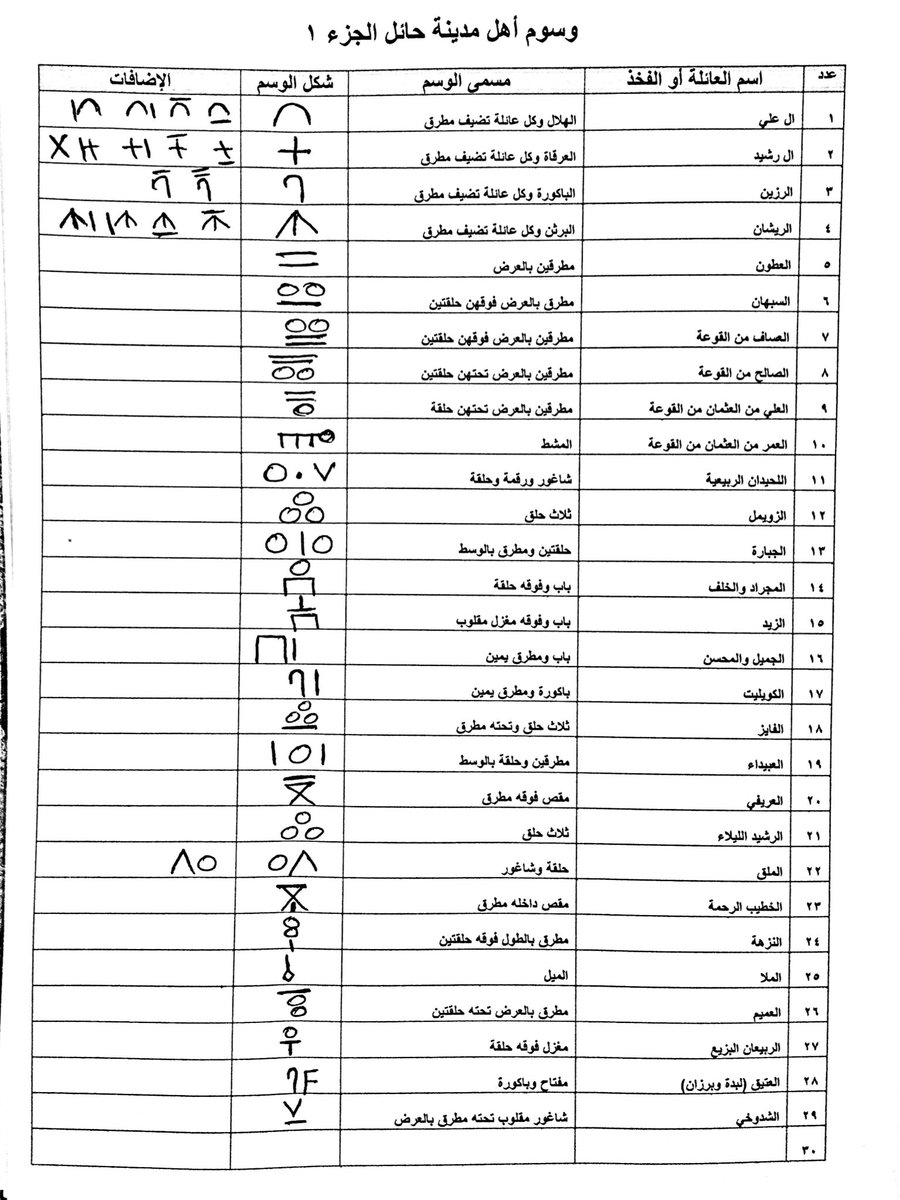 وسوم أهل مدينة حائل الجزء ١
عدد اسم العائلة أو الفخذ مسمى الوسم شكل الوسم الإضافات
١ ال علي الهلال وكل عائلة تضيف مطرق
٢ ال رشيد العرقاة وكل عائلة تضيف مطرق
٣ الرزين الباكورة وكل عائلة تضيف مطرق
٤ الريشان البرثن وكل عائلة تضيف مطرق
٥ العطون مطرقين بالعرض
٦ السبهان مطرق بالعرض فوقهن حلقتين
٧ الصاف من القوعة مطرقين بالعرض فوقهن حلقتين
٨ الصالح من القوعة مطرقين بالعرض تحتهن حلقتين
٩ العلي من العثمان من القوعة مطرقين بالعرض تحتهن حلقة
١٠ العمر من العثمان من القوعة المشط
١١ اللحيدان الربيعية شاغور ورقمة وحلقة
١٢ الزويمل ثلاث حلق
١٣ الجبارة حلقتين ومطرق بالوسط
١٤ المجراد والخلف باب وفوقه حلقة
١٥ الزيد باب وفوقه مغزل مقلوب
١٦ الجميل والمحسن باب ومطرق يمين
١٧ الكويليت باكورة ومطرق يمين
١٨ الفايز ثلاث حلق وتحته مطرق
١٩ العبيداء مطرقين وحلقة بالوسط
٢٠ العريفي مقص فوقه مطرق
٢١ الرشيد الليلاء ثلاث حلق
٢٢ الملق حلقة وشاغور
٢٣ الخطيب الرحمة مقص داخله مطرق
٢٤ النزهة مطرق بالطول فوقه حلقتين
٢٥ الملا الميل
٢٦ العميم مطرق بالعرض تحته حلقتين
٢٧ الربيعان البزيع مغزل فوقه حلقة
٢٨ العتيق (لبدة وبرزان) مفتاح وباكورة
٢٩ الشدوخي شاغور مقلوب تحته مطرق بالعرض
٣٠